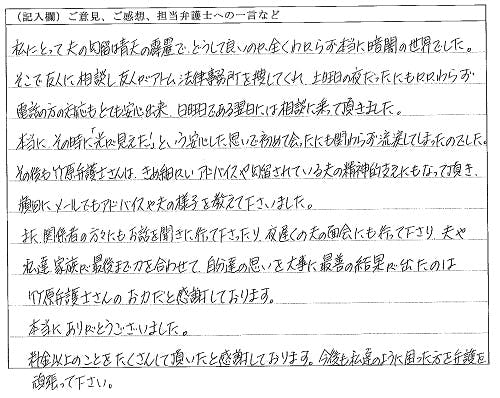 （記入欄）ご意見、ご感想、担当弁護士への一言など
私にとって夫の勾留は青天の霹靂で、どうして良いのか全くわからず本当に暗闇の世界でした。
そこで友人に相談し友人がアトム法律事務所を捜してくれ、土曜日の夜だったにもかかわらず
電話の方の対応もとても安心出来、日曜日である翌日には相談に乗って頂きました。
本当に、その時に「光が見えた!」という安心した思いで初めて会ったにも関わらず流涙してしまったのでした。
その後も竹原弁護士さんは、きめ細かいアドバイスや勾留されている夫の精神的支えにもなって頂き、
頻回にメールでもアドバイスや夫の様子を教えて下さいました。
また、関係者の方々にもお話を聞きに行って下さったり、夜遅くの夫の面会にも行って下さり、夫や
私達家族が最後まで力を合わせて、自分達の思いを大事に最善の結果が出たのは
竹原弁護士さんのお力だと感謝しております。
本当にありがとうございました。
料金以上のことをたくさんして頂いたと感謝しております。今後も私達のように困った方を弁護を
頑張って下さい。